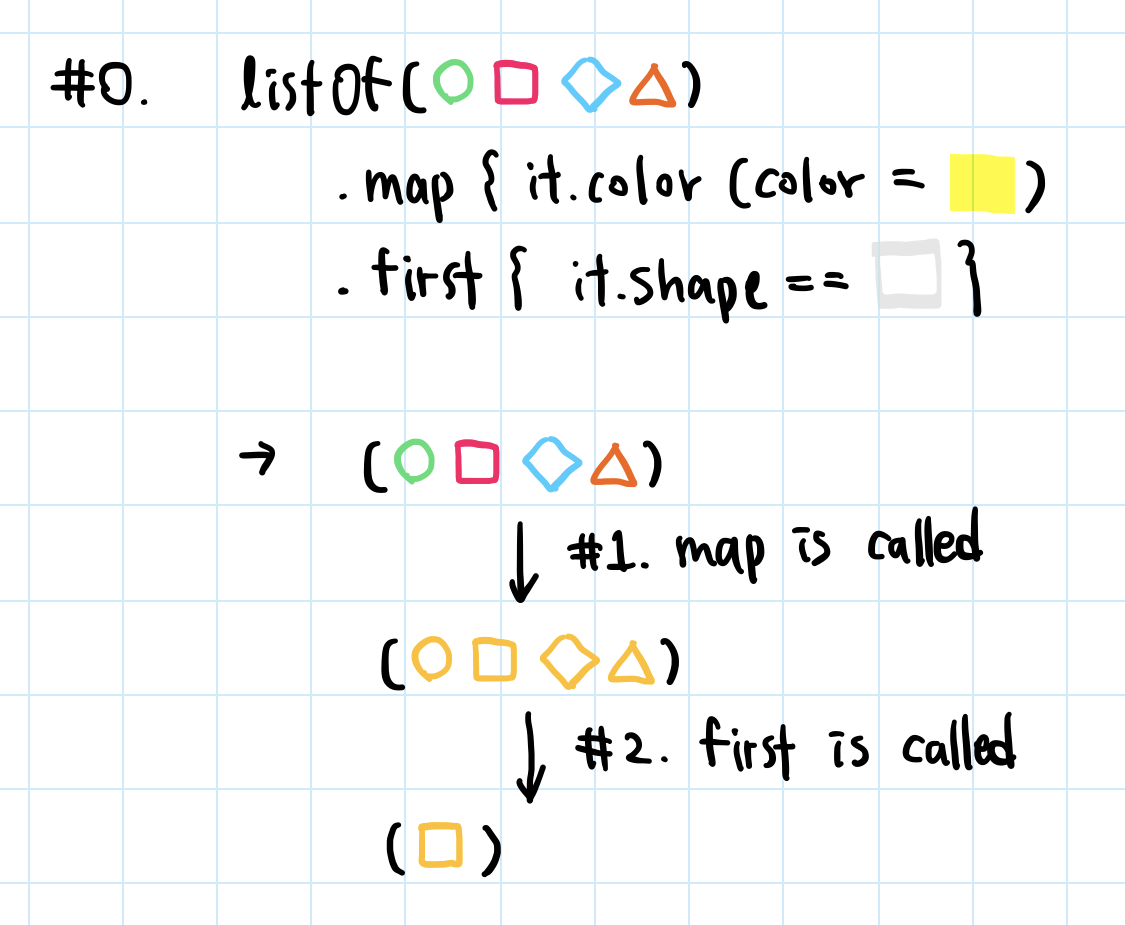 #0. listOf( )
.map { it.color (color = )
.first { it.shape == }
→ ( )
#1. map is called
( )
#2. first is called
( )